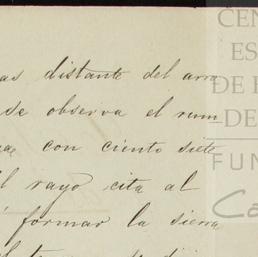 as distante del arro
se observa el rum
con ciento siete
el rayo cita al
formar la sierra
CEN
ES
DE
DE
FUN
Ca